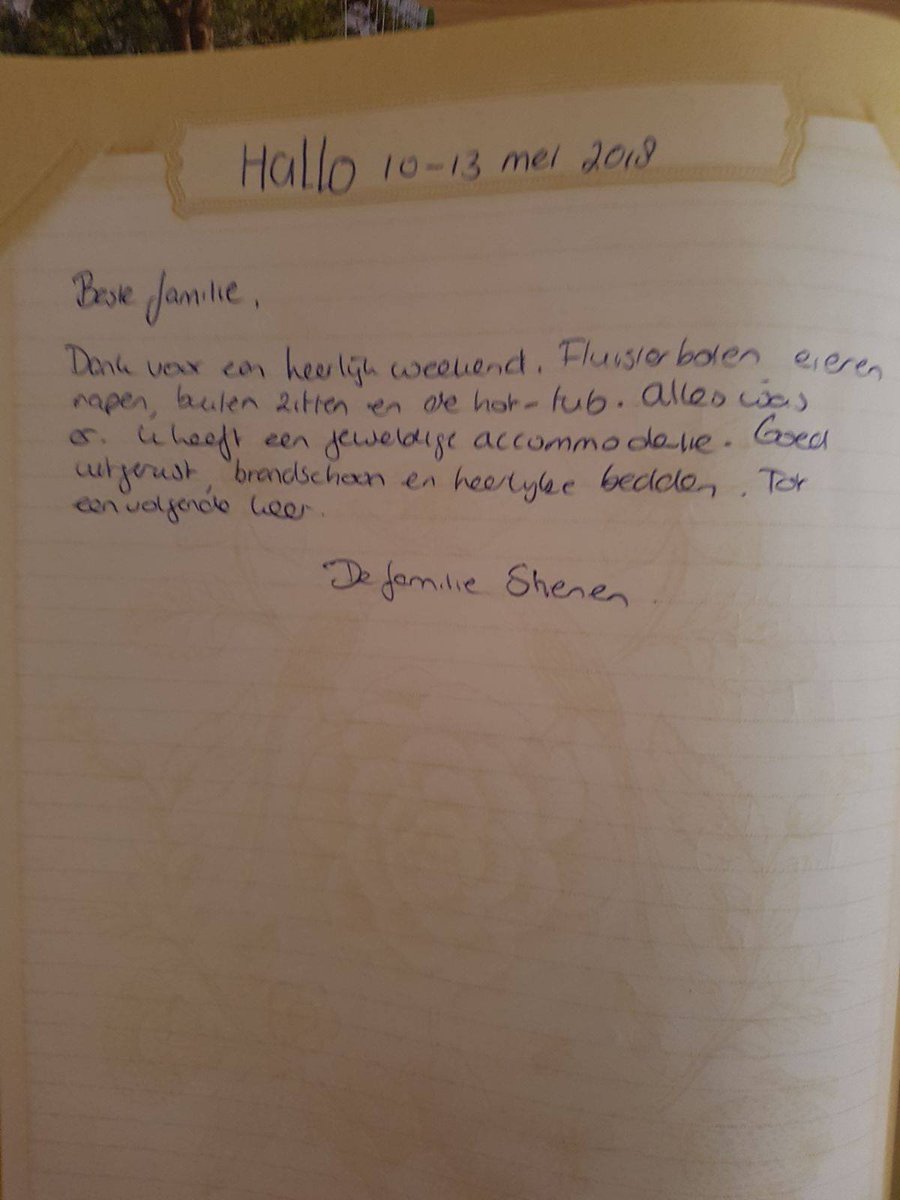 Hallo 10-13 mei 2018
Beste familie,
Dank voor een heerlijk weekend. Fluisterboten, eieren
rapen, buiten zitten en de hot-tub. Alles was
er. U heeft een geweldige accommodatie. Goed
uitgerust, brandschoon en heerlijke bedden. Tot
een volgende keer.
De familie Shenen